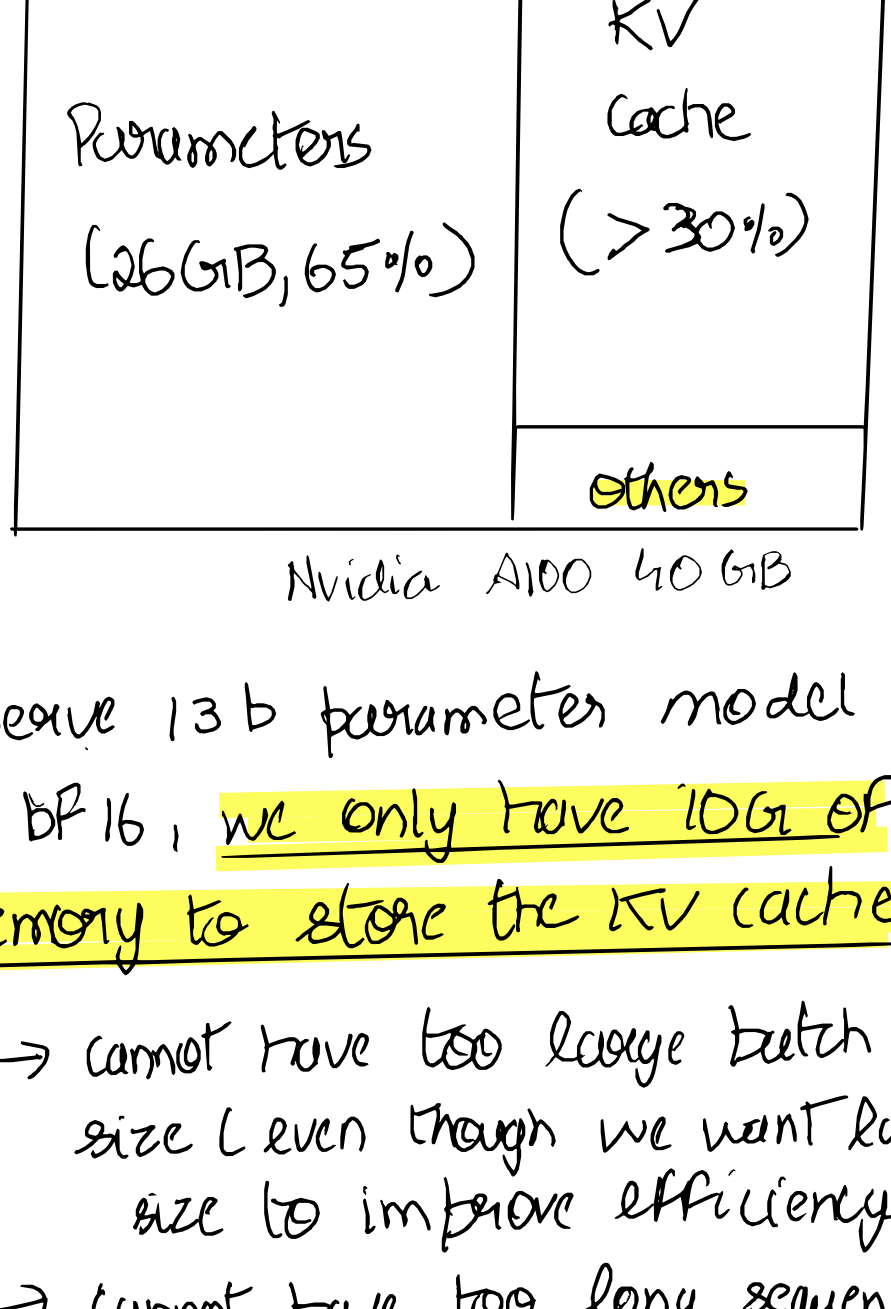 KV
Parameters
Cache
(26GB, 65%)
(>30%)
others
Nvidia A100 40 GB
13 b parameter model
bf16, we only have 10G of
to store the KV cache
→ cannot have too large batch
size (even though we want
size to improve efficiency
→ cannot have too long